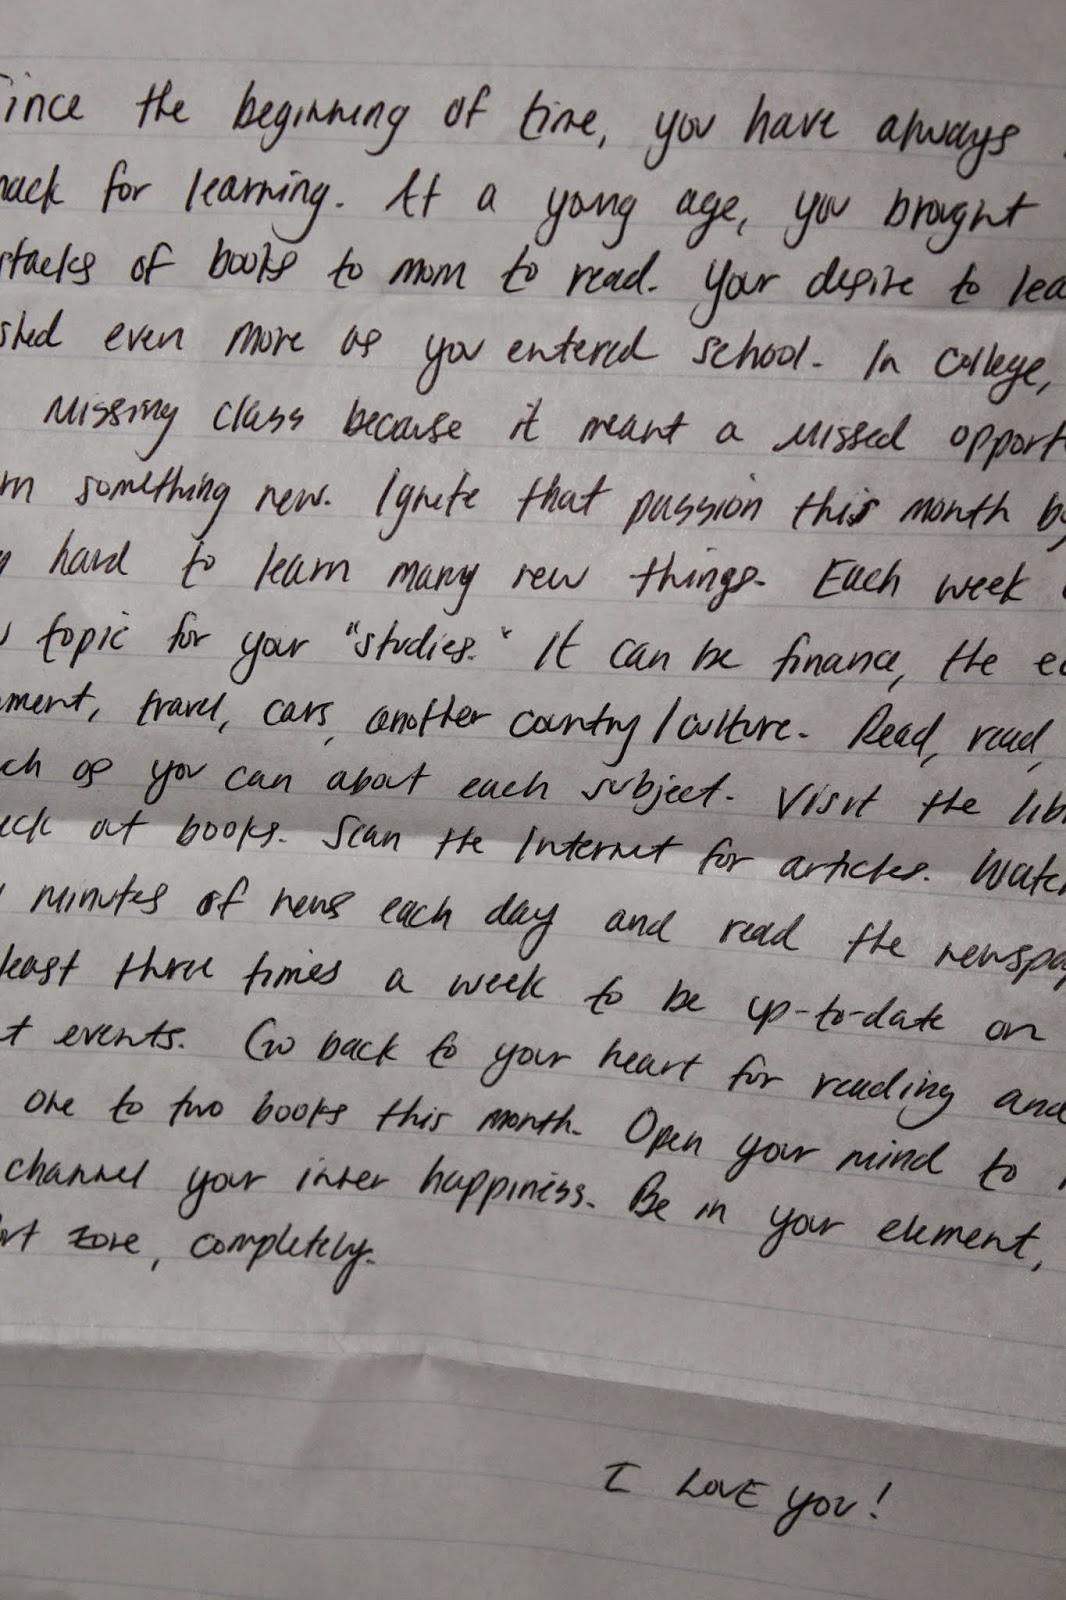 Since the beginning of time, you have always
nack for learning. At a young age, you brought
stacks of books to mom to read. Your desire to lea
shed even more as you entered school. In college,
missing class because it meant a missed opport
rn something new. Ignite that passion this month by
g hard to learn many new things. Each week
topic for your "studies." It can be finance, the ec
nment, travel, cars, another country/culture. Read, read,
ch as you can about each subject. Visit the lib
eck out books. Scan the Internet for articles. Watch
minutes of news each day and read the newspa
least three times a week to be up-to-date on
t events. Go back to your heart for reading and
one to two books this month. Open your mind to
channel your inner happiness. Be in your element,
ort zone, completely.
I LOVE YOU!